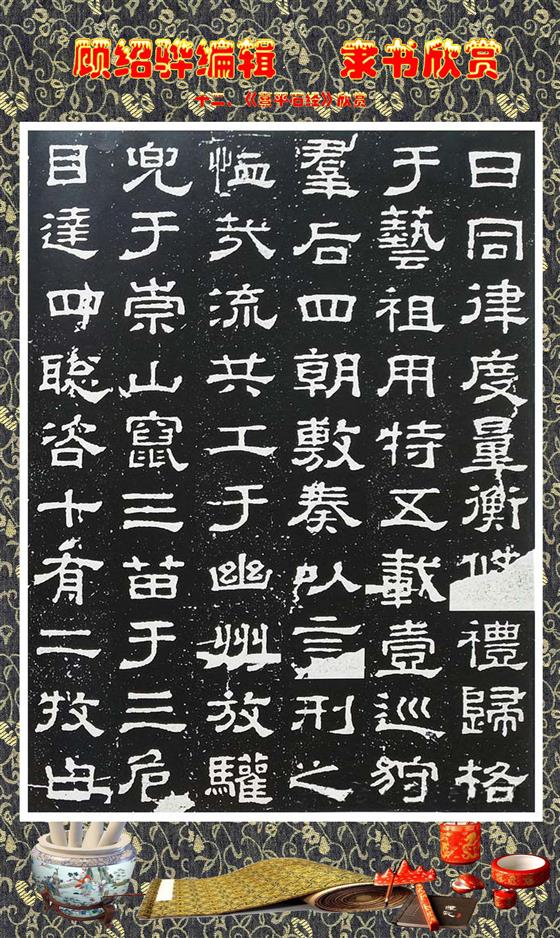 顾绍骅编辑 隶书欣赏
十二、《熹平石经》欣赏
日同律度量衡修禮歸格
于藝祖用特五載壹巡狩
羣后四朝敷奏以言刑之
恤哉流共工于幽州放驩
兜于崇山竄三苗于三危
目達四聦咨十有二牧曰